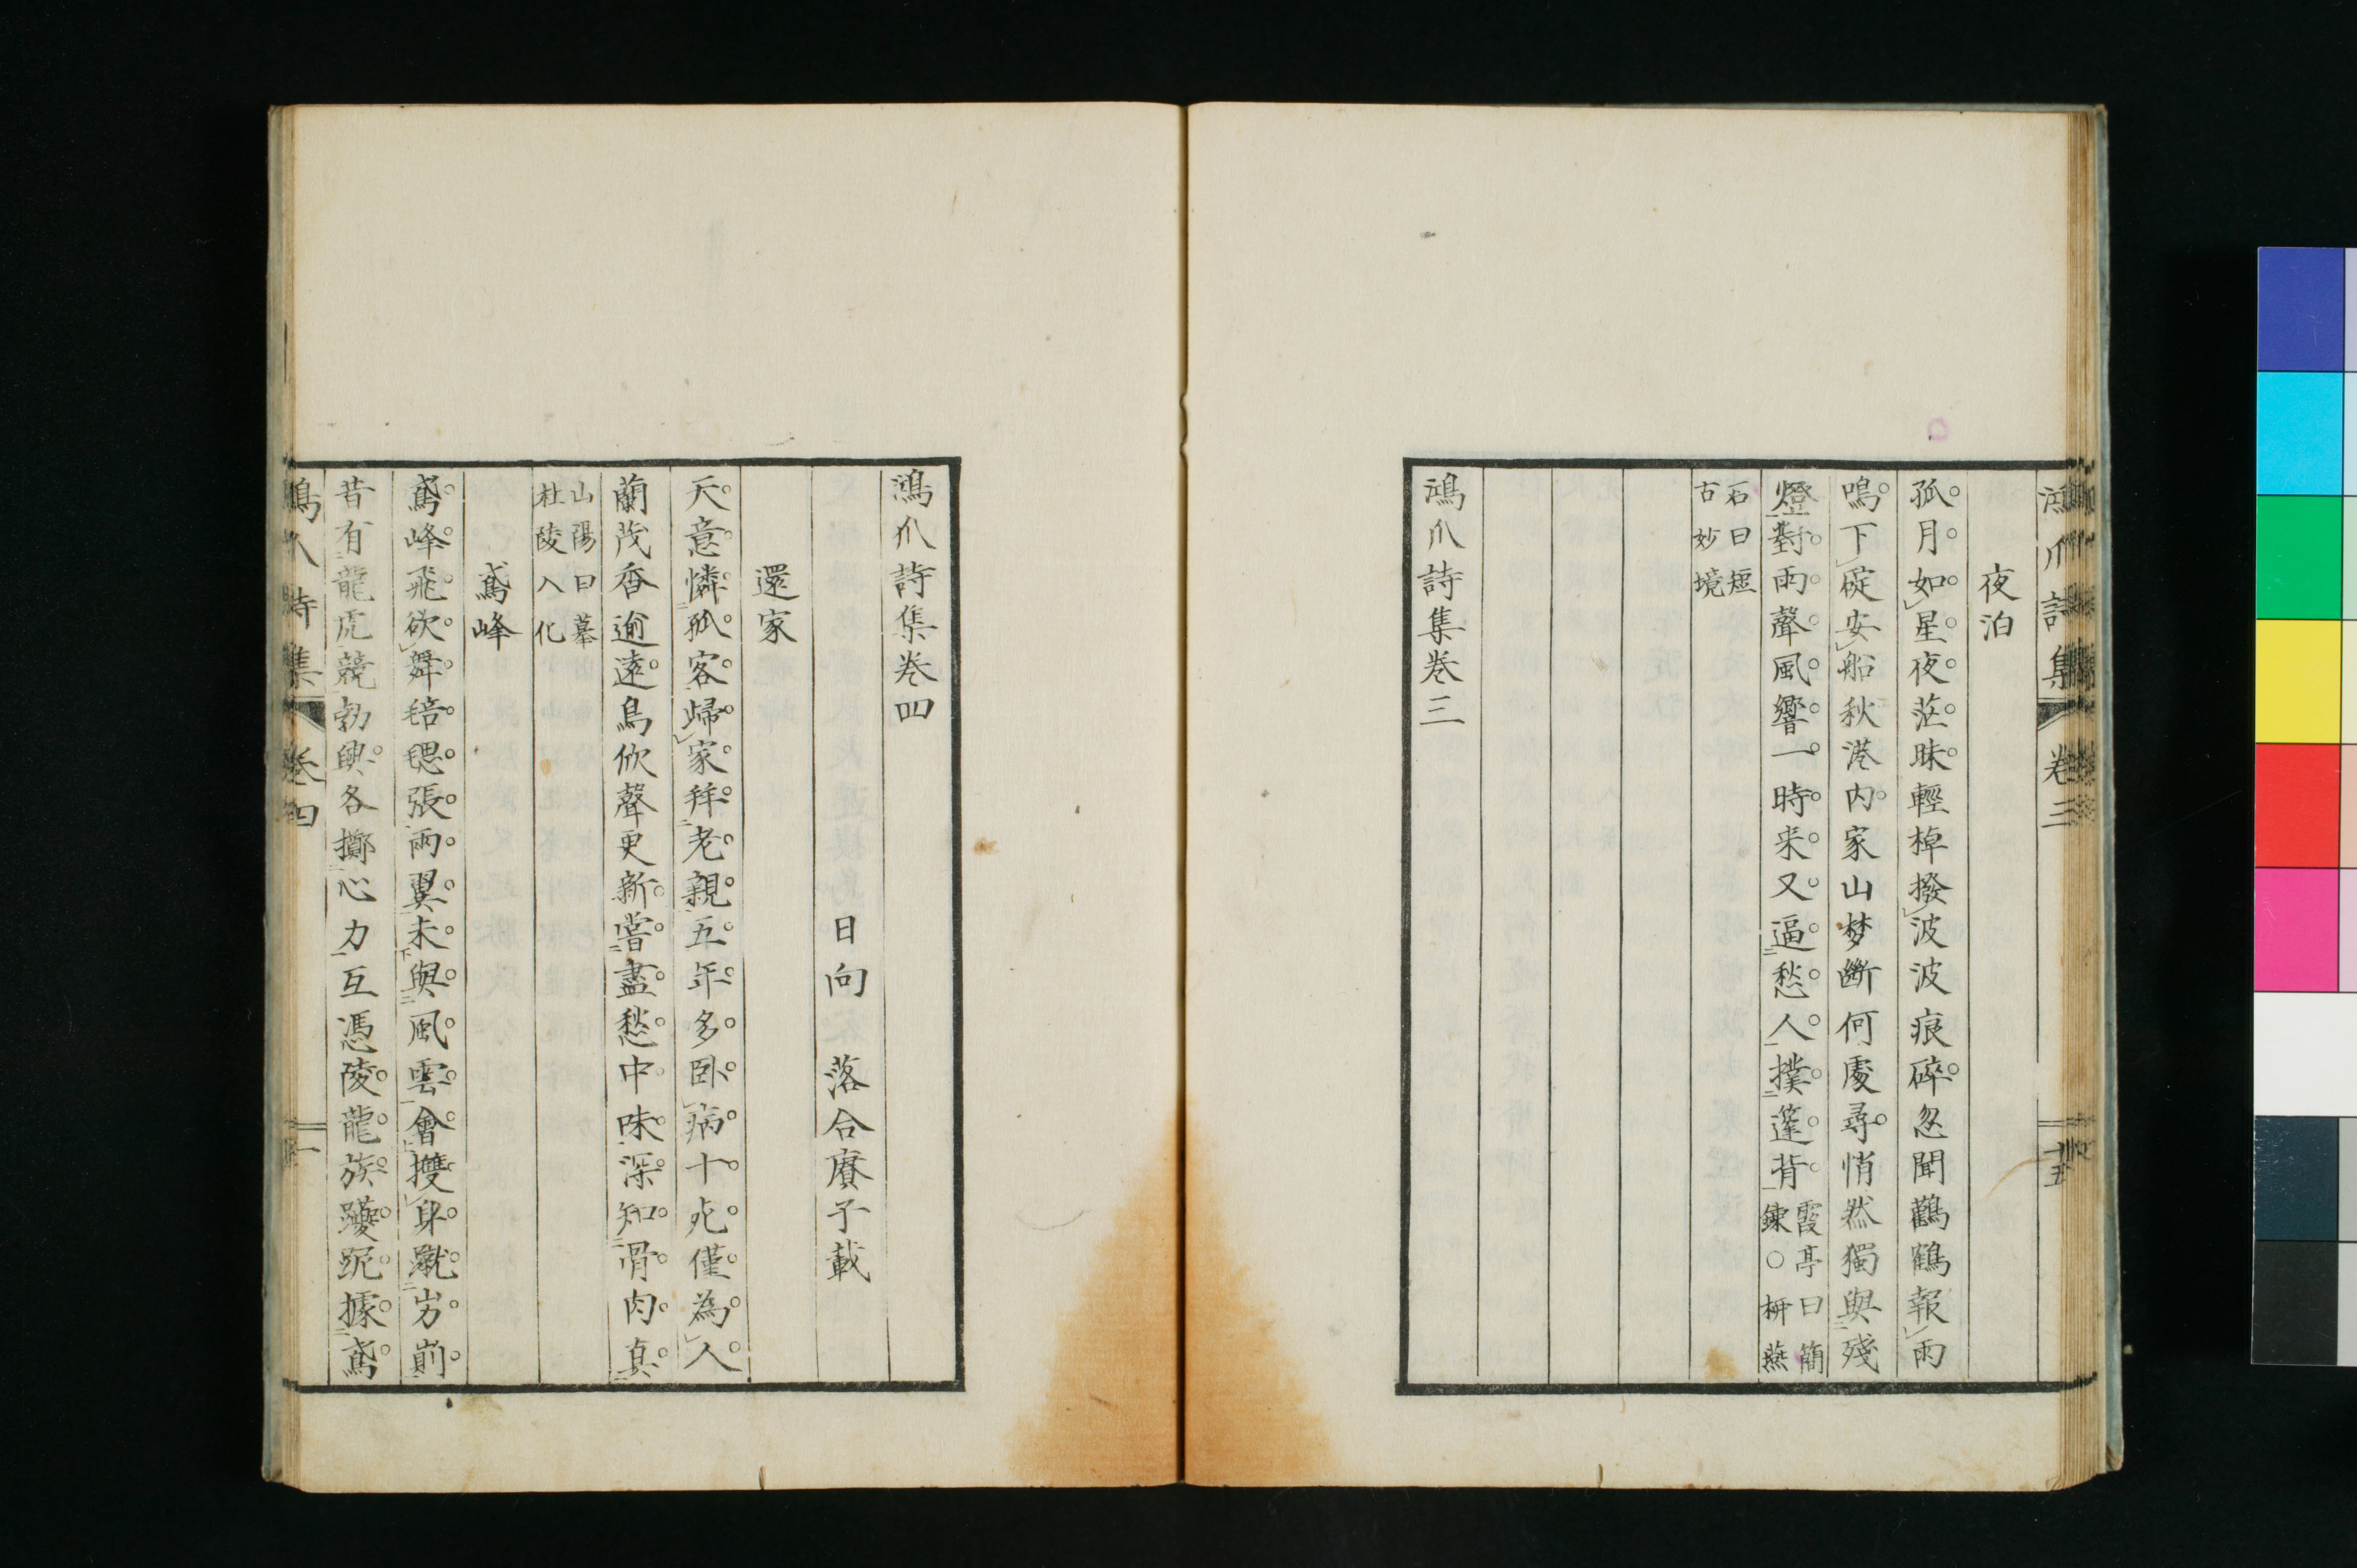 鴻爪詩集
卷三
十五
夜泊
孤月如星夜茫昧輕棹撥波波痕碎忽聞鸛鶴報雨
鳴下碇安船秋港内家山梦斷何處尋悄然獨與殘
燈對雨聲風響一時来又逼愁人撲篷背
霞亭曰簡
錬○栟蕪
石曰短
古妙境
鴻爪詩集卷三
鴻爪詩集卷四
日向 落合賡子載
還家
天意憐孤客歸家拜老親五年多卧病十死僅為人
蘭茂香逾遠鳥欣聲更新嘗盡愁中味深知骨肉真
山陽曰摹
杜陵入化
鳶峰
鳶峰飛欲舞毰毸張兩翼未與風雲會攫身蹴岃崱
昔有龍虎競勃興各擲心力互憑陵龍族躨跜據鳶
鴻爪詩集
卷四
一